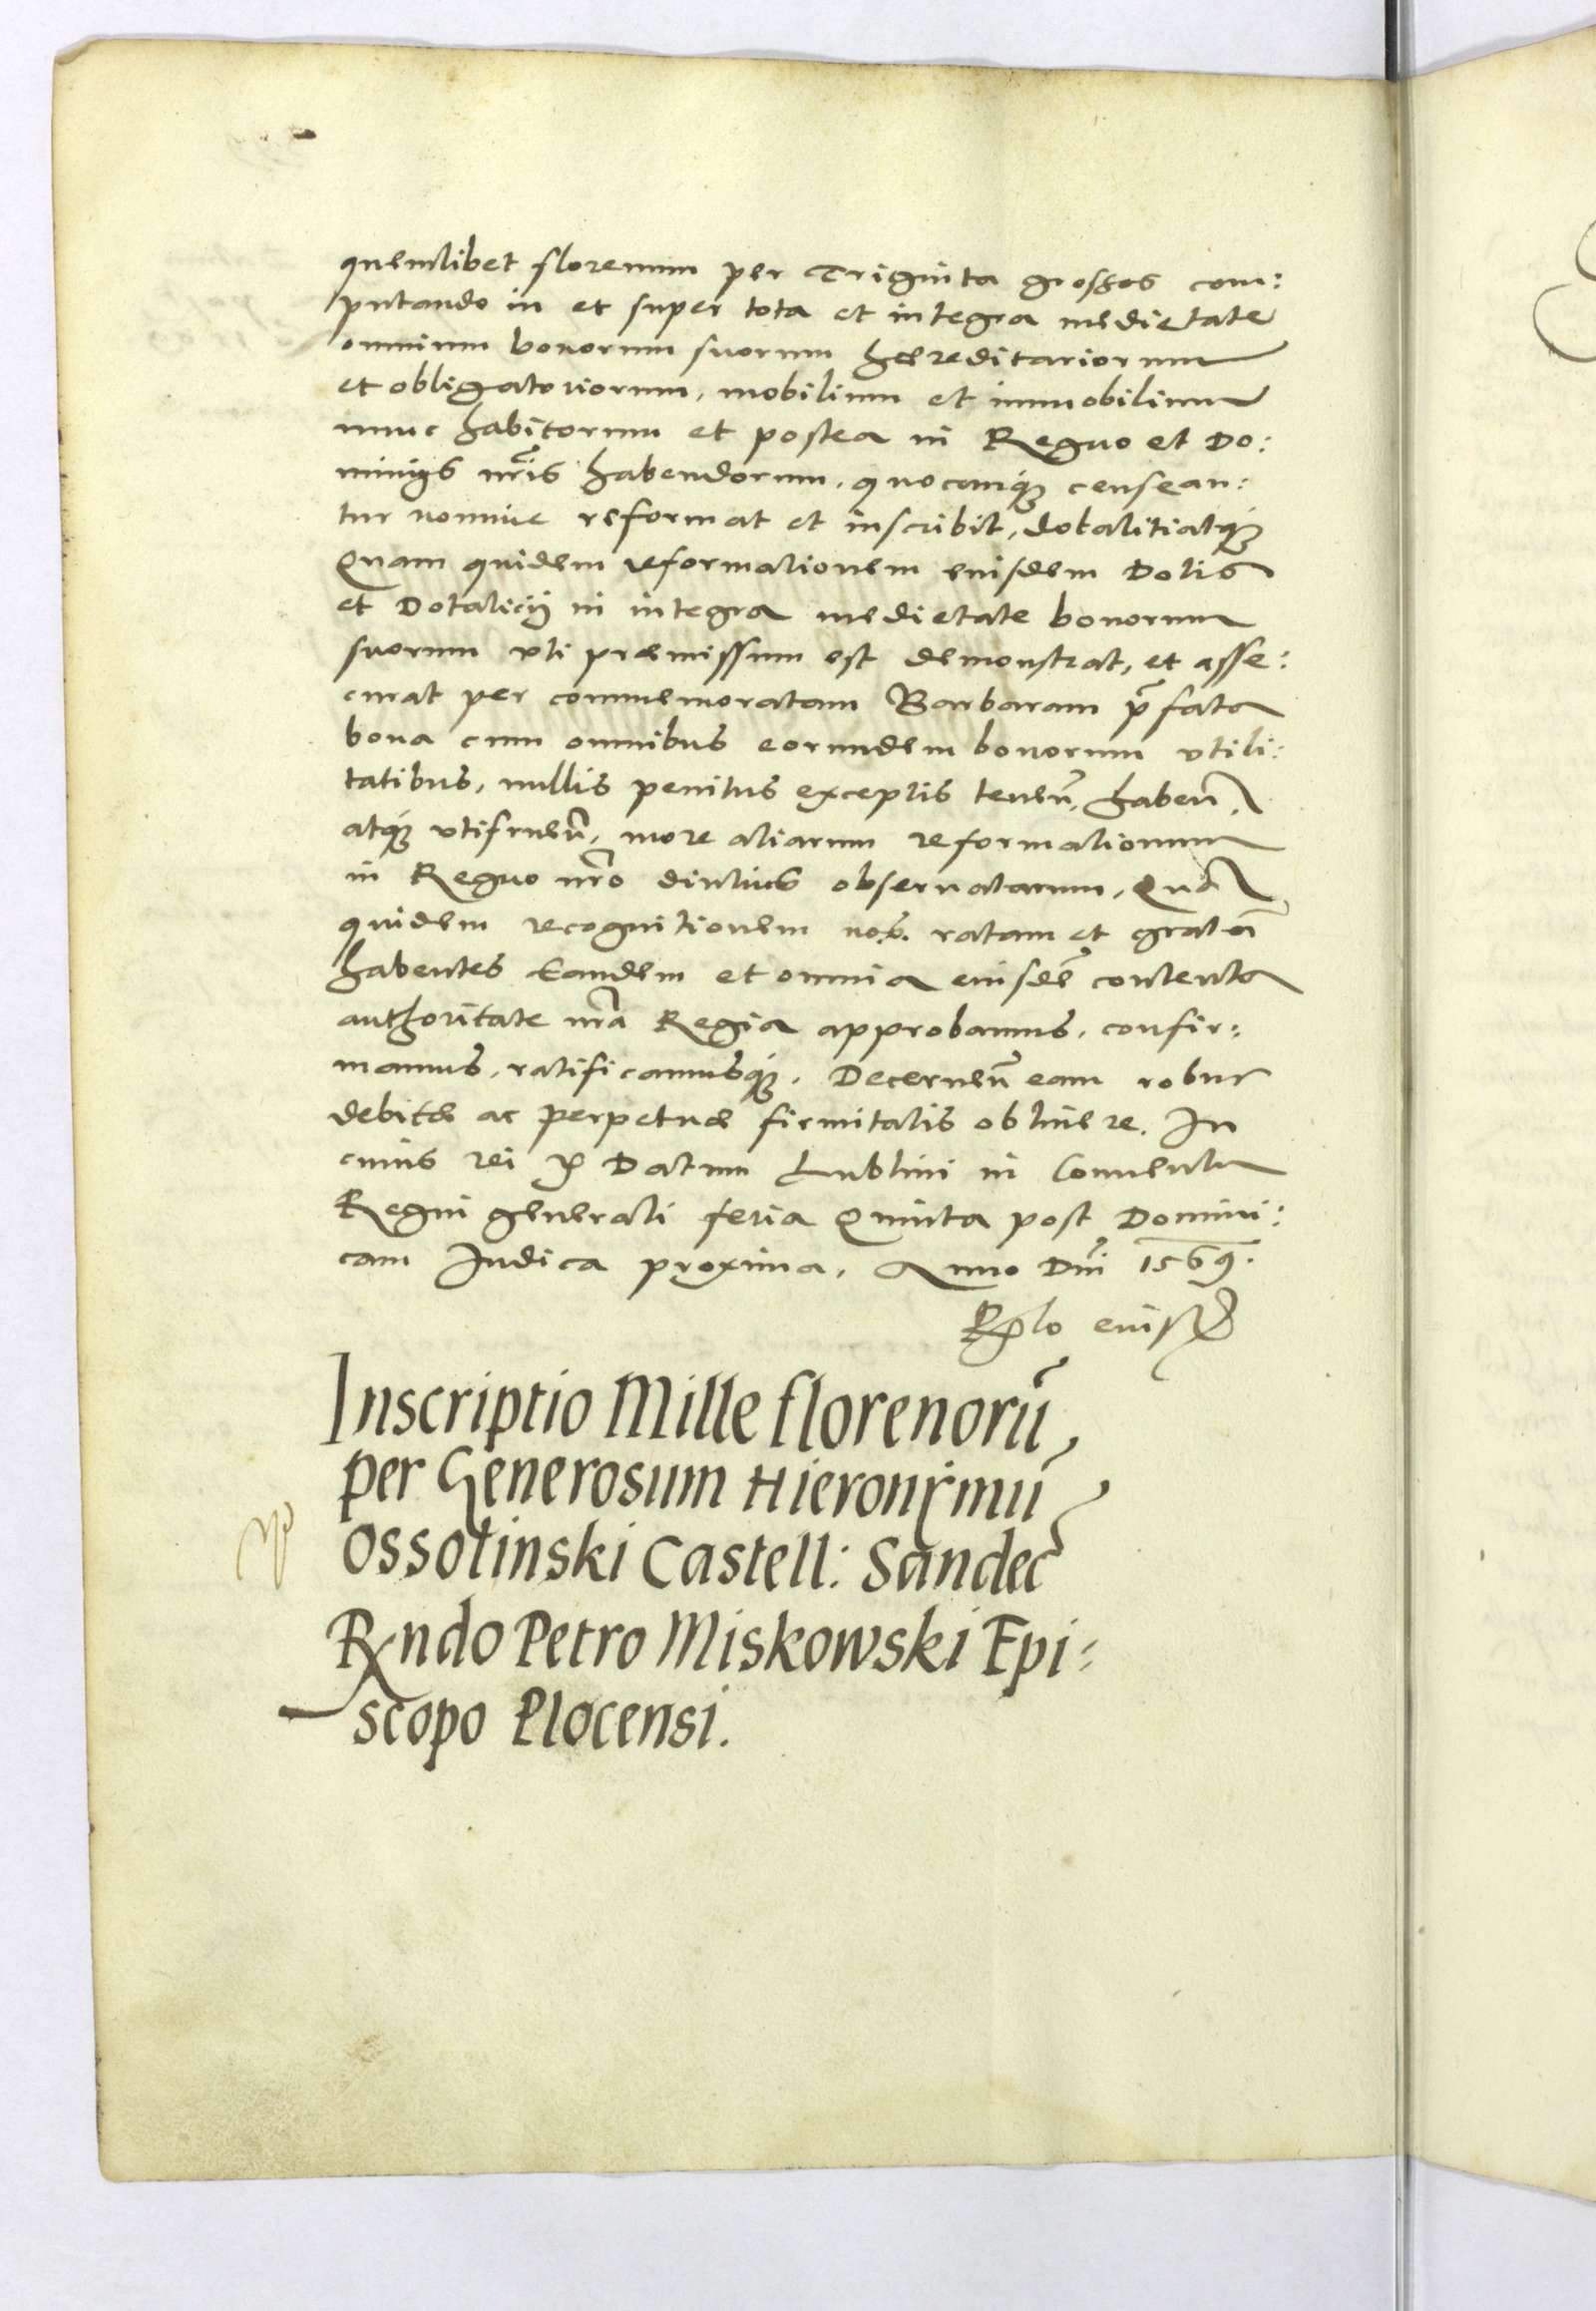 quemlibet florenum per Triginta grossos com:
putando in et super tota et integra medietate
omnium bonorum suorum hæreditariorum
et obligatoriorum, mobilium et immobilium
nunc habitorum et postea in Regno et Do:
minijs nr̃is habendorum, quocunq́; censean:
tur nomine reformat et inscribit, dotalitiatq́;
Quam quidem reformationem eiusdem Dotis
et Dotalicij in integra medietate bonorum
suorum vti præmissum est demonstrat, et asse:
curat per commemoratam Barbaram p̃fata
bona cum omnibus eorundem bonorum vtili:
tatibus, nullis penitus exceptis tenen̄, haben̄,
atq́; vtifruen̄, more aliarum reformationum
in Regno nr̃o diutius obseruatarum, Quā
quidem recognitionem nos. ratam et gratam̄
habentes Eandem et omnia eiusdē contenta
authoritate nr̃a Regia approbamus, confir:
mamus, ratificamusq́;. Decernen̄ eam robur
debitæ ac perpetuæ firmitatis obtinere. In
cuius rei &c Datum Lublini in Conuentu
Regni generali feria Quinta post Domini:
cam Iudica proxima, Anno Dn̄i 1569.
Relo eiusd
Inscriptio Mille florenorū,
per Generosum Hieronymū
Ossolinski Castell: Sandec̄
Rndo Petro Miskowski Epi:
scopo Plocensi.